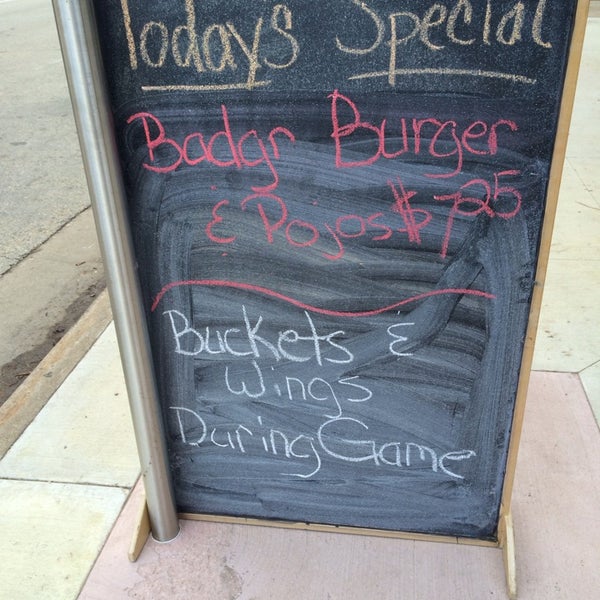 Today's Special
Badgr Burger
& Pojos $7.25
Buckets &
Wings
During Game